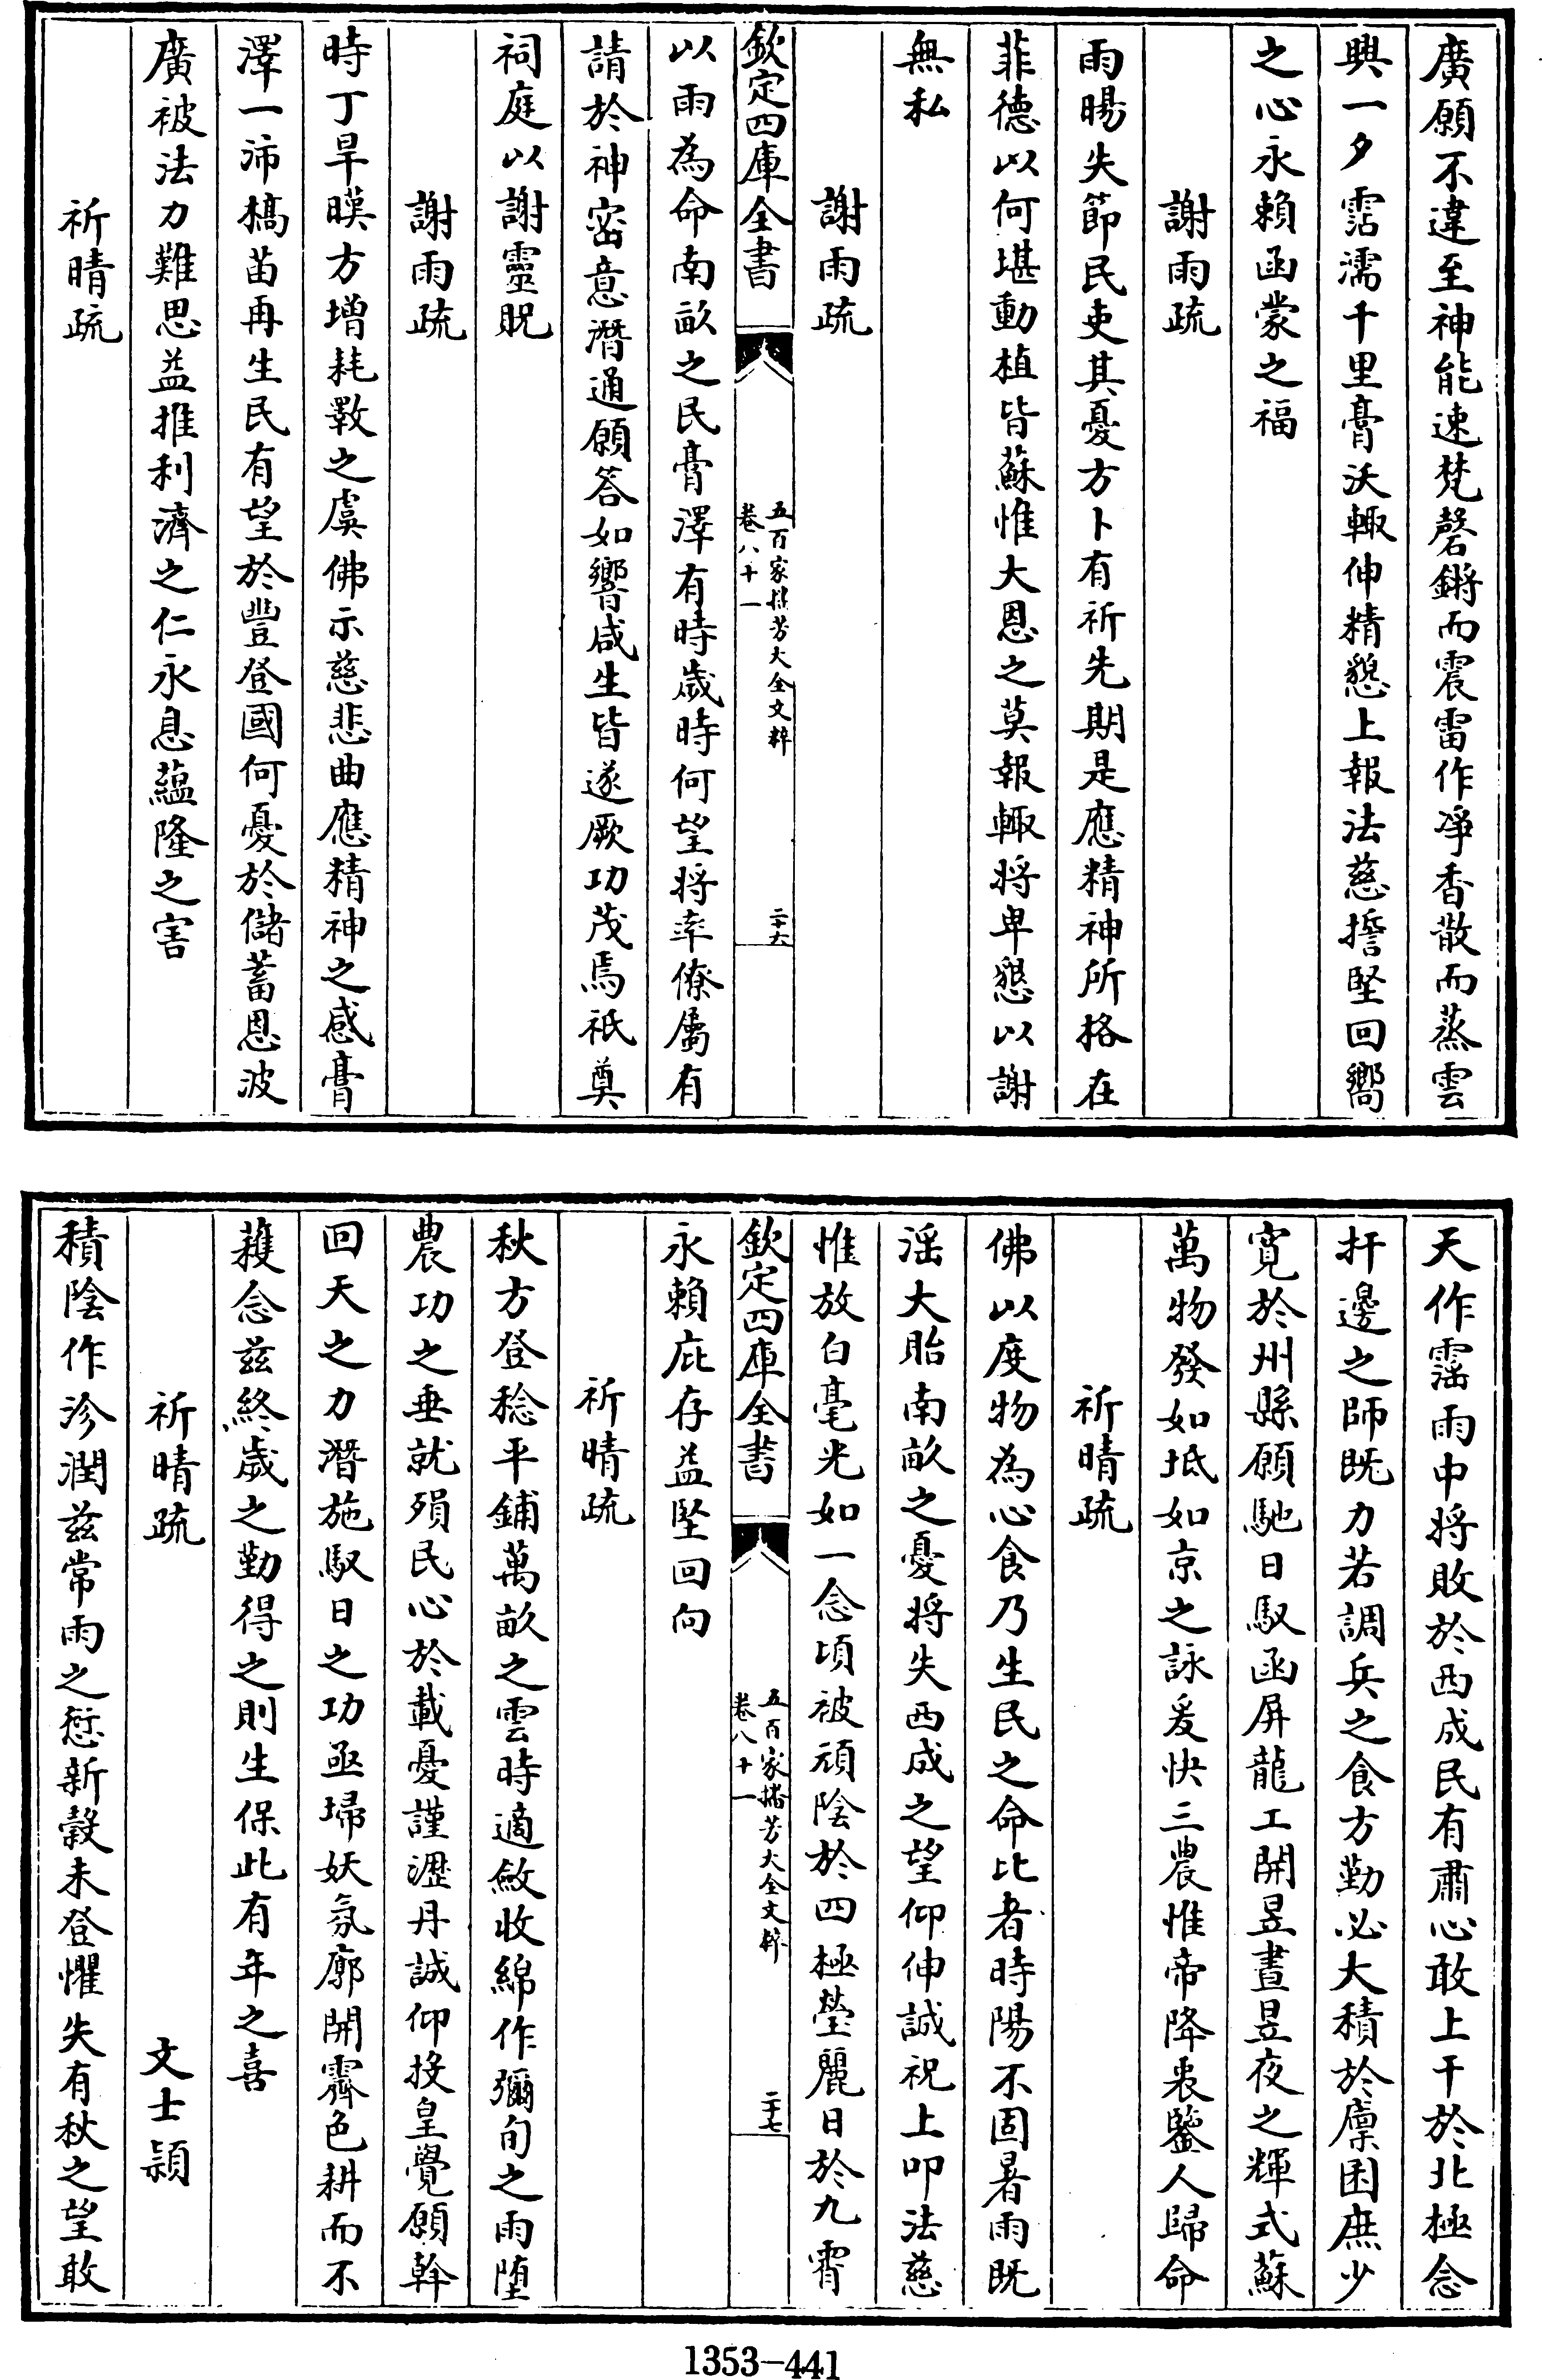 廣願不違至神能速梵磬鏘而震雷作凈香散而蒸雲
興一夕霑濡千里膏沃輙伸精懇上報法慈擔堅回嚮
之心永賴函蒙之福
謝雨疏
雨暘失節民吏其憂方卜有祈先期是應精神所格在
菲德以何堪動植皆蘇惟大恩之莫報輙將卑懇以謝
無私
謝雨疏
欽定四庫全書
五百家播芳大全文粹
卷八十一
二十六
以雨為命南畝之民膏澤有時歲時何望將率僚屬有
請於神密意潛通願答如響咸生皆遂厥功茂焉祗奠
祠庭以謝靈貺
謝雨疏
時丁旱暵方增耗斁之虞佛示慈悲曲應精神之感膏
澤一沛槁苗再生民有望於豐登國何憂於儲蓄恩波
廣被法力難思益推利濟之仁永息蘊隆之害
祈晴疏
天作霪雨中將敗於西成民有肅心敢上干於北極念
扞邊之師既力若調兵之食方勤必大積於廩囷庶少
寛於州縣願馳日馭函屏龍工開昱晝昱夜之輝式蘇
萬物發如坻如京之詠爰快三農惟帝降衷鑒人歸命
祈晴疏
佛以度物為心食乃生民之命比者時陽不固暑雨既
淫大貽南畝之憂將失西成之望仰伸誠祝上叩法慈
惟放白毫光如一念頃被頑陰於四極瑩麗日於九霄
欽定四庫全書
五百家播芳大全文粹
卷八十一
二十七
永賴庇存益堅回向
祈晴疏
秋方登稔平鋪萬畝之雲時適斂收綿作彌旬之雨墮
農功之垂就殞民心於載憂謹瀝丹誠仰投皇覺願斡
回天之力潛施馭日之功亟埽妖氛廓開霽色耕而不
穫念兹終歲之勤得之則生保此有年之喜
祈晴疏
文士頴
積陰作沴潤兹常雨之愆新穀未登懼失有秋之望敢
1353-441